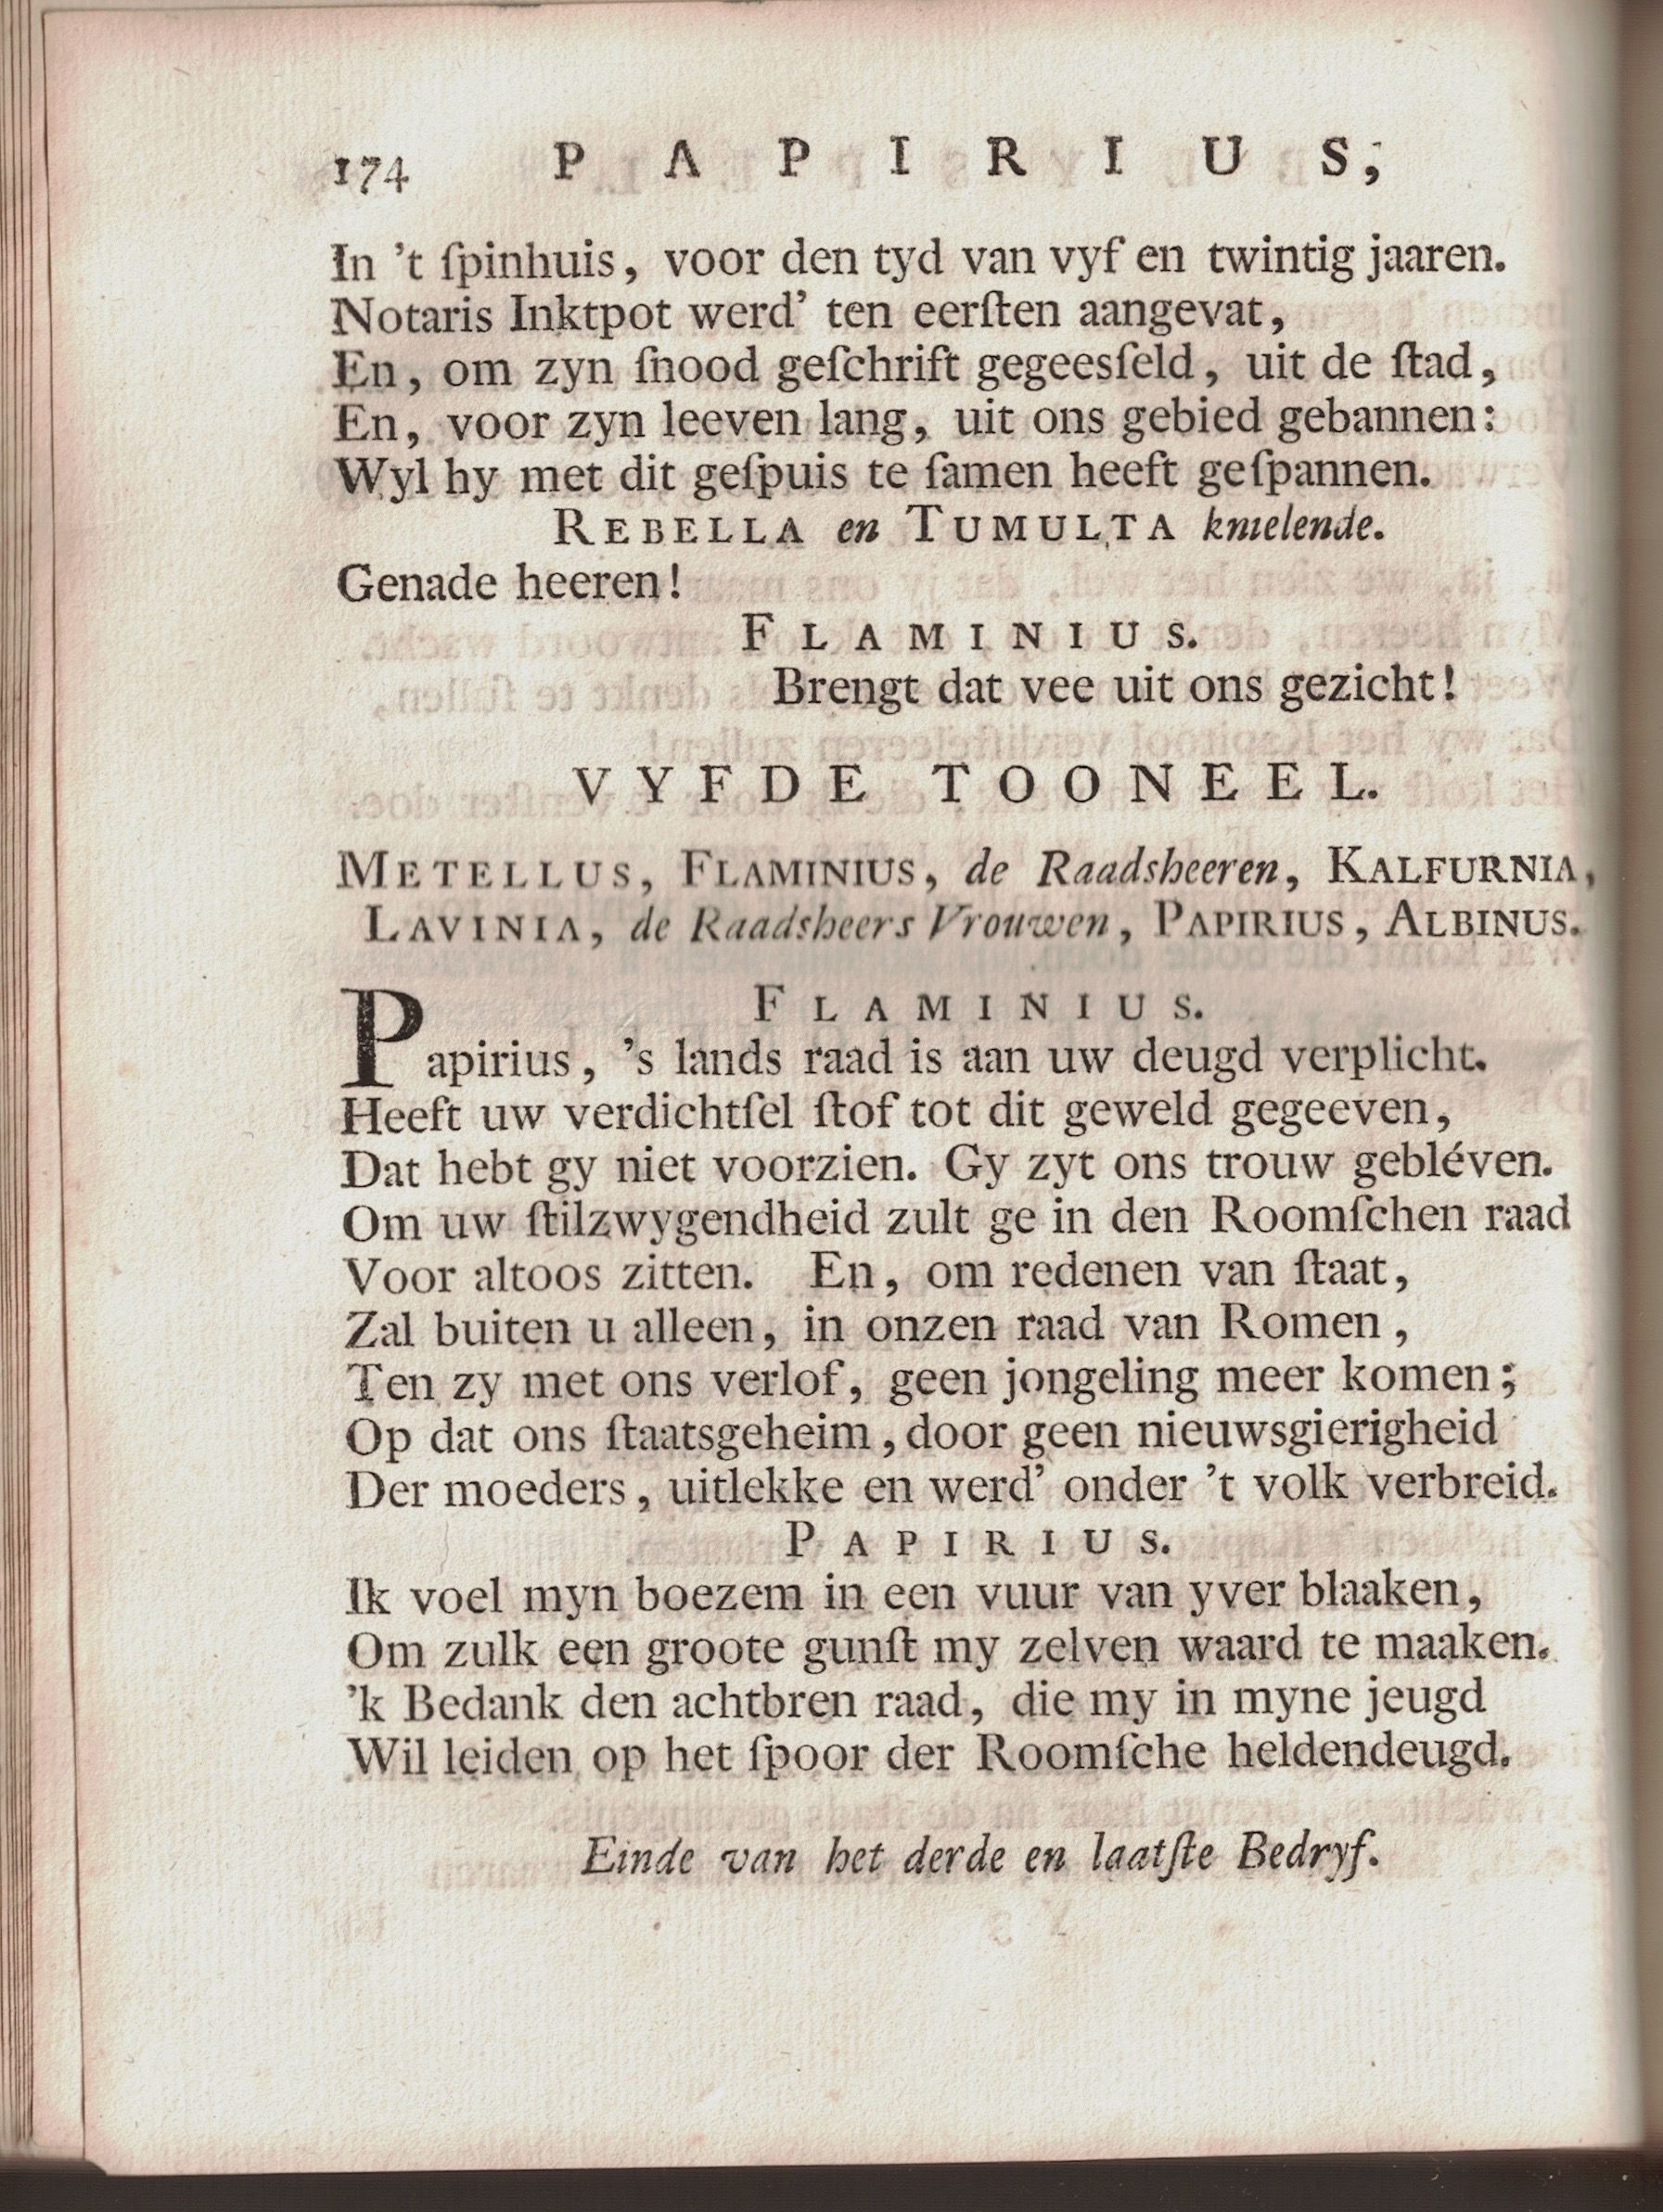 174 PAPIRIUS,
In 't ſpinhuis, voor den tyd van vyf en twintig jaaren.
Notaris Inktpot werd' ten eerſten aangevat,
En, om zyn ſnood geſchrift gegeesſeld, uit de ſtad,
En, voor zyn leeven lang, uit ons gebied gebannen:
Wyl hy met dit geſpuis te ſamen heeft geſpannen.
REBELLA en TUMULTA knielende.
Genade heeren!
FLAMINIUS.
Brengt dat vee uit ons gezicht!
VYFDE TOONEEL.
METELLUS, FLAMINIUS, de Raadsheeren, KALFURNIA,
LAVINIA, de Raadsheers Vrouwen, PAPIRIUS, ALBINUS.
FLAMINIUS.
Papirius, 's lands raad is aan uw deugd verplicht.
Heeft uw verdichtſel ſtof tot dit geweld gegeeven,
Dat hebt gy niet voorzien. Gy zyt ons trouw gebléven.
Om uw ſtilzwygendheid zult ge in den Roomſchen raad
Voor altoos zitten. En, om redenen van ſtaat,
Zal buiten u alleen, in onzen raad van Romen,
Ten zy met ons verlof, geen jongeling meer komen;
Op dat ons ſtaatsgeheim, door geen nieuwsgierigheid
Der moeders, uitlekke en werd' onder 't volk verbreid.
PAPIRIUS.
Ik voel myn boezem in een vuur van yver blaaken,
Om zulk een groote gunſt my zelven waard te maaken.
'k Bedank den achtbren raad, die my in myne jeugd
Wil leiden op het ſpoor der Roomſche heldendeugd.
Einde van het derde en laatſte Bedryf.